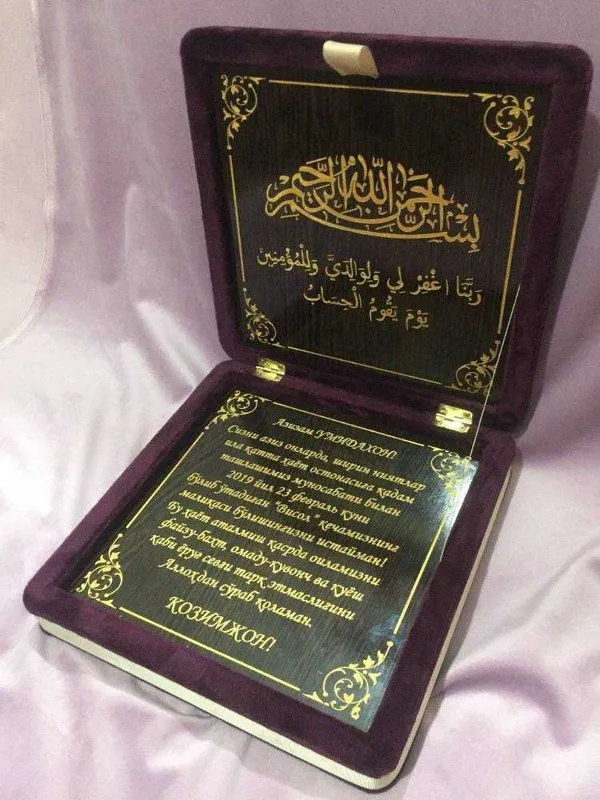 بِسْمِ اللهِ الرَّحْمٰنِ الرَّحِيْمِ
رَبَّنَا اغْفِرْ لِي وَلِوَالِدَيَّ وَلِلْمُؤْمِنِينَ
يَوْمَ يَقُومُ الْحِسَابُ
Азизам УМИДАХОН!
Сизни азиз онларда, ширин ниятлар
ила катта ҳаёт остонасига қадам
ташлашимиз муносабати билан
2019 йил 23 февраль куни
бўлиб ўтадиган "Висол" кечамизнинг
маликаси бўлишингизни истайман!
Бу ҳаёт аталмиш қасрда оиламизни
файзу-бахт, омаду-қувонч ва қуёш
каби ёруғ севги тарк этмаслигини
Аллоҳдан сўраб қоламан.
КОЗИМЖОН!